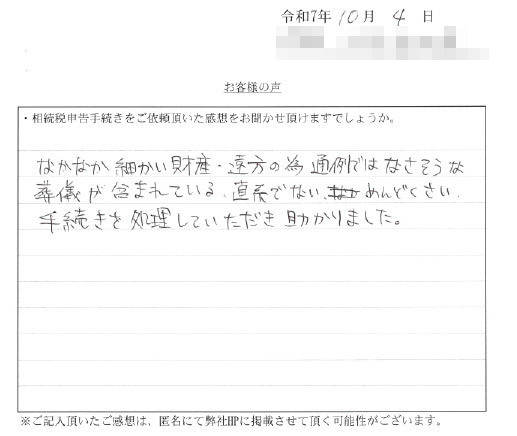 令和7年 10月 4日
お客様の声
・相続税申告手続きをご依頼頂いた感想をお聞かせ頂けますでしょうか。
なかなか細かい財産・遠方の為 通例ではなさそうな
葬儀が含まれている、直系でない、めんどくさい、
手続きを処理していただき助かりました。
※ご記入頂いたご感想は、匿名にて弊社HPに掲載させて頂く可能性がございます。